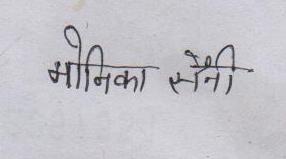 मोनिका सैनी